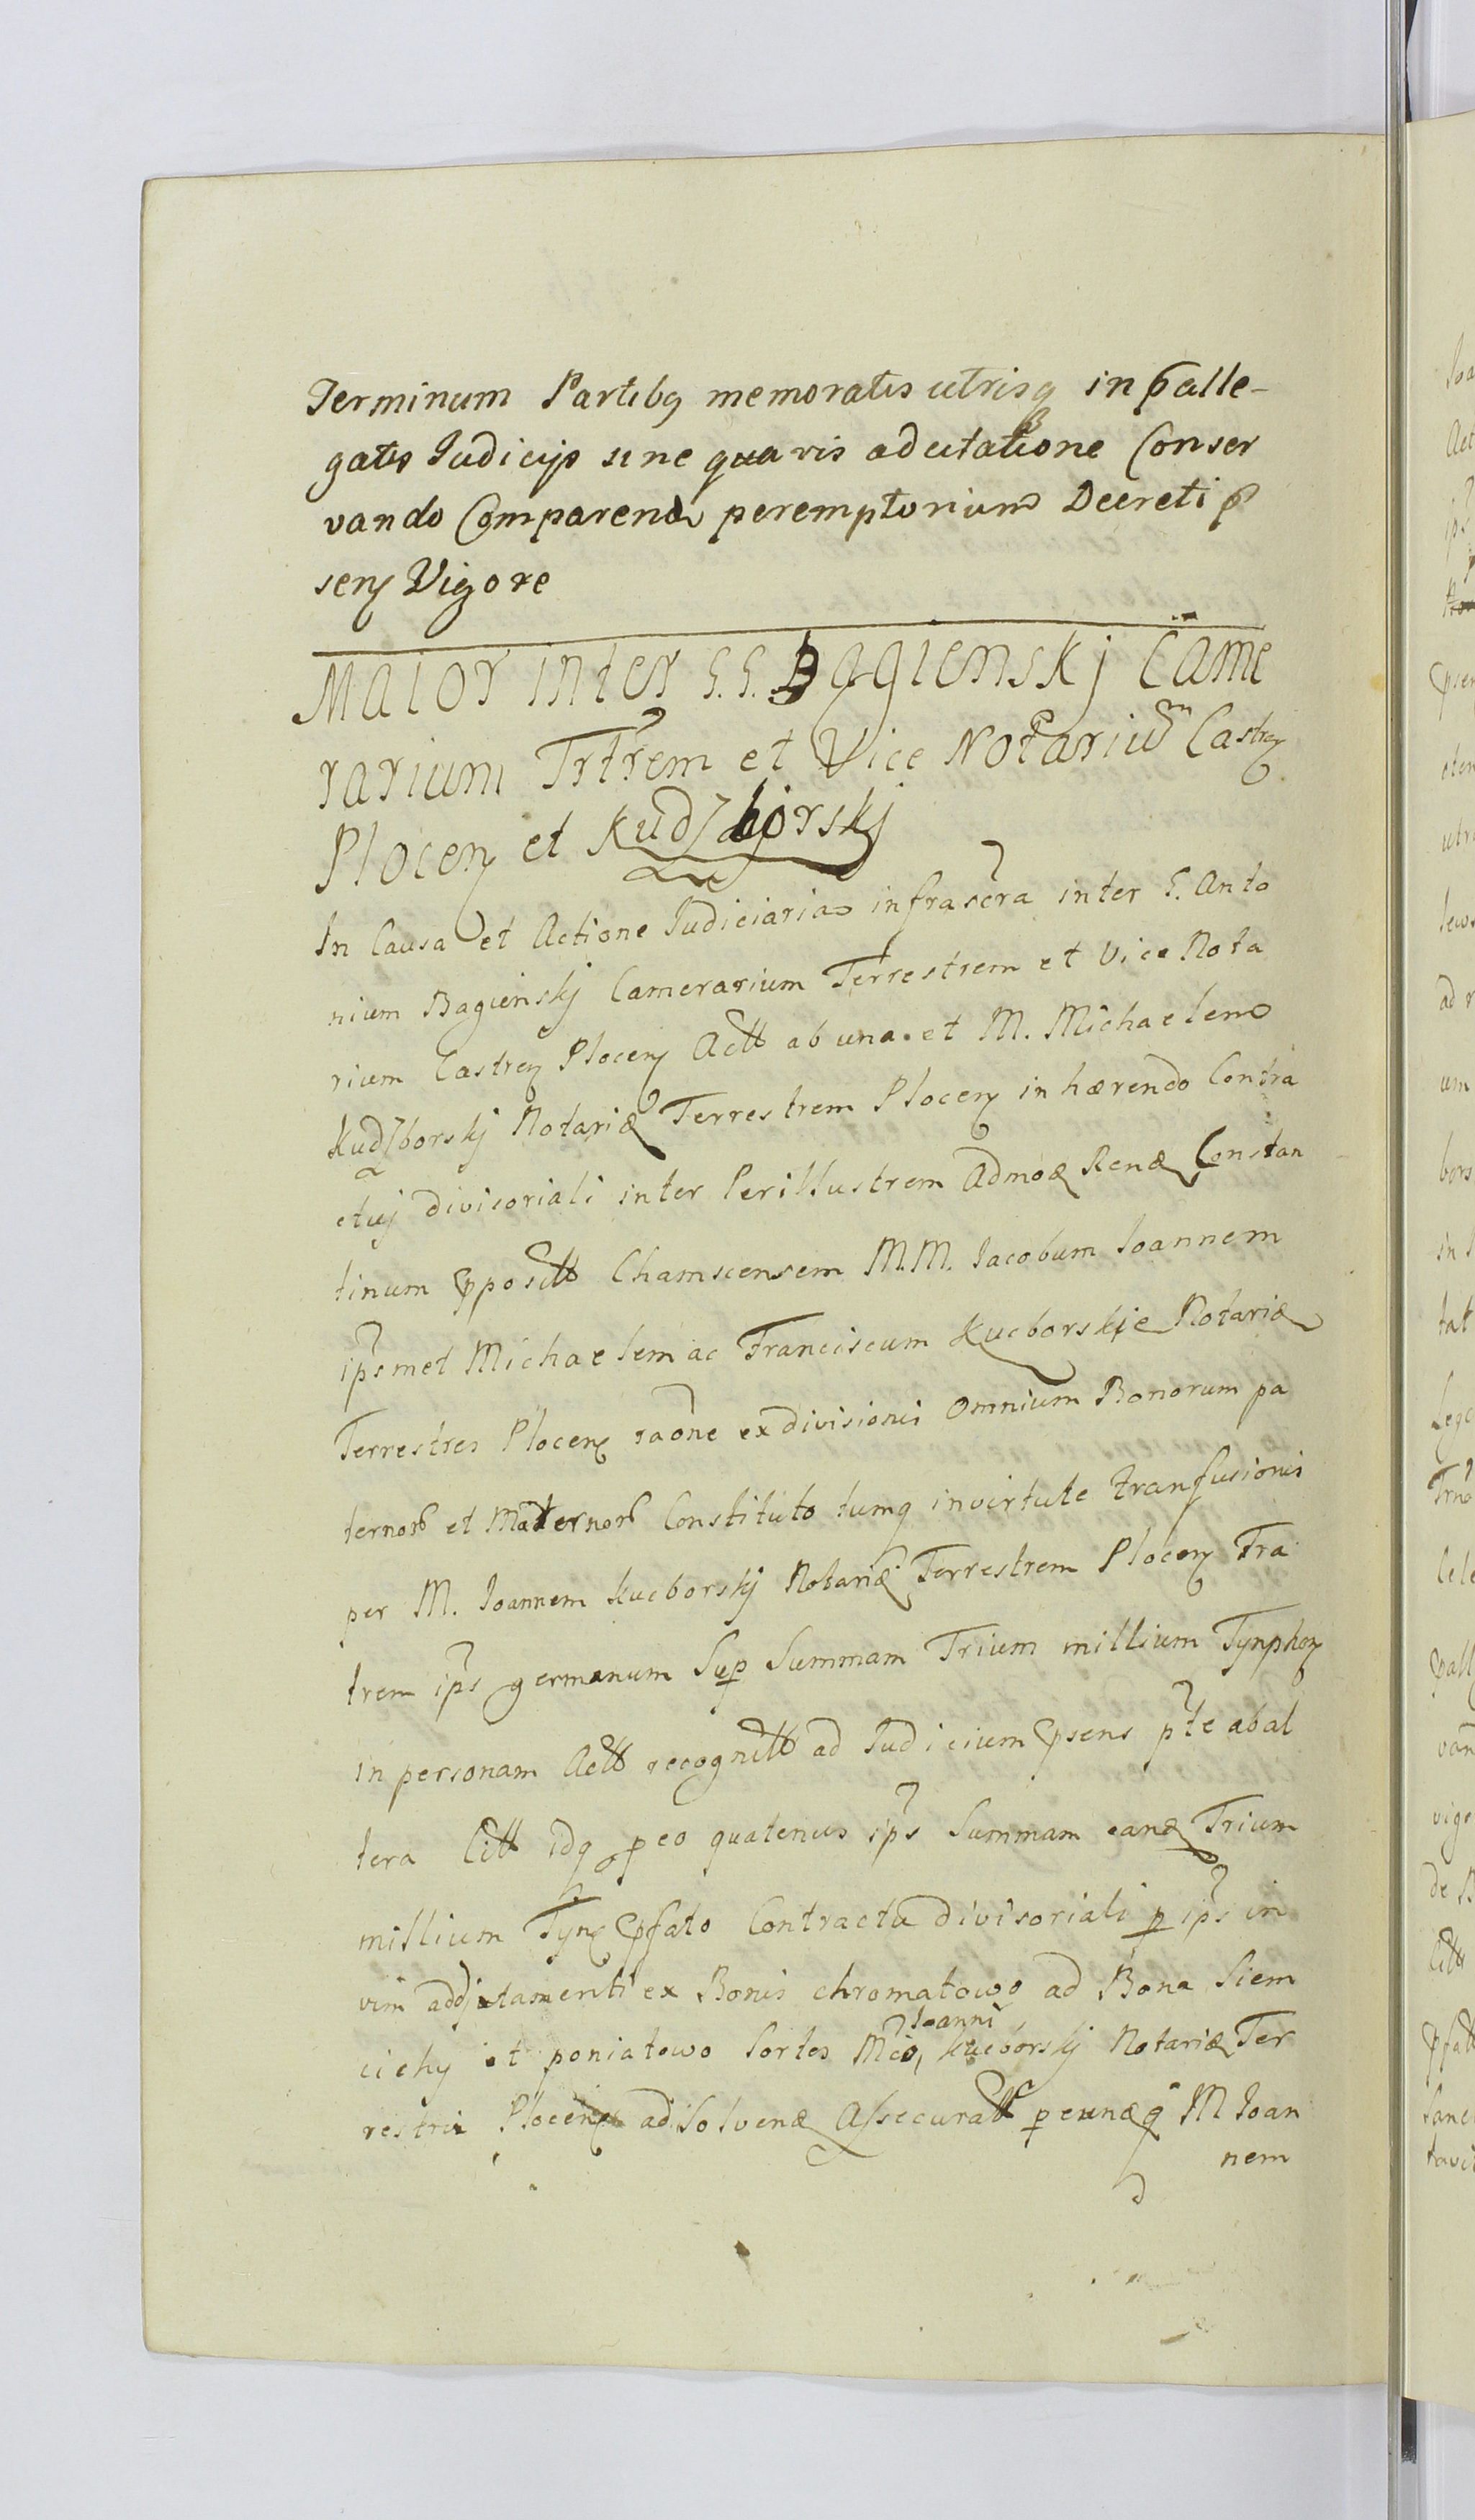 Terminum Partibq memoratis utrisq in palle-
gatis Judicijs sine quavis adcitatione Conser
vando Comparend peremptorium Decreti p
sen Vigore
Maior inter G. G. Bagienskj Came
rarium Trtrem et Vice Notarium Castren
Plocen et Kudzborskj
In Causa et Actione Judiciaria infrascra inter G. Anto
nium Bagienskj Camerarium Terrestrem et Vice Nota
rium Castren Plocen Actt ab una. et M. Michaelem
Kudzborskj Notariu Terrestrem Plocen in hærendo Contra
ctuj divisoriali inter Perillustrem Admo Ren Constan
tinum pposett Chamscensem M.M. Jacobum Joannem
ipsmet Michaelem ac Franciscum Kucborskie Notariu
Terrestres Plocen raone exdivisionis Omnium Bonorum pa
ternor et Maternor Constituto tumq invirtute tranfusionis
per M. Joannem Kucborskj Notariu Terrestrem Plocen Fra
trem ips germanum Sup Summam Trium millium Tynphon
in personam Actt recognitt ad Judicium psens pte abal
tera Citt idq peo quatenus ips Summam eand Trium
millium Tyn pfato Contractu divisoriali p ips in
vim addjtamenti ex Bonis chromatowo ad Bona Siem
Joanni
cichy et poniatowo Sortes Mco, Kucborskj Notariu Ter
restri Plocen ad Solvend Assecuratt peundq M Joan
nem